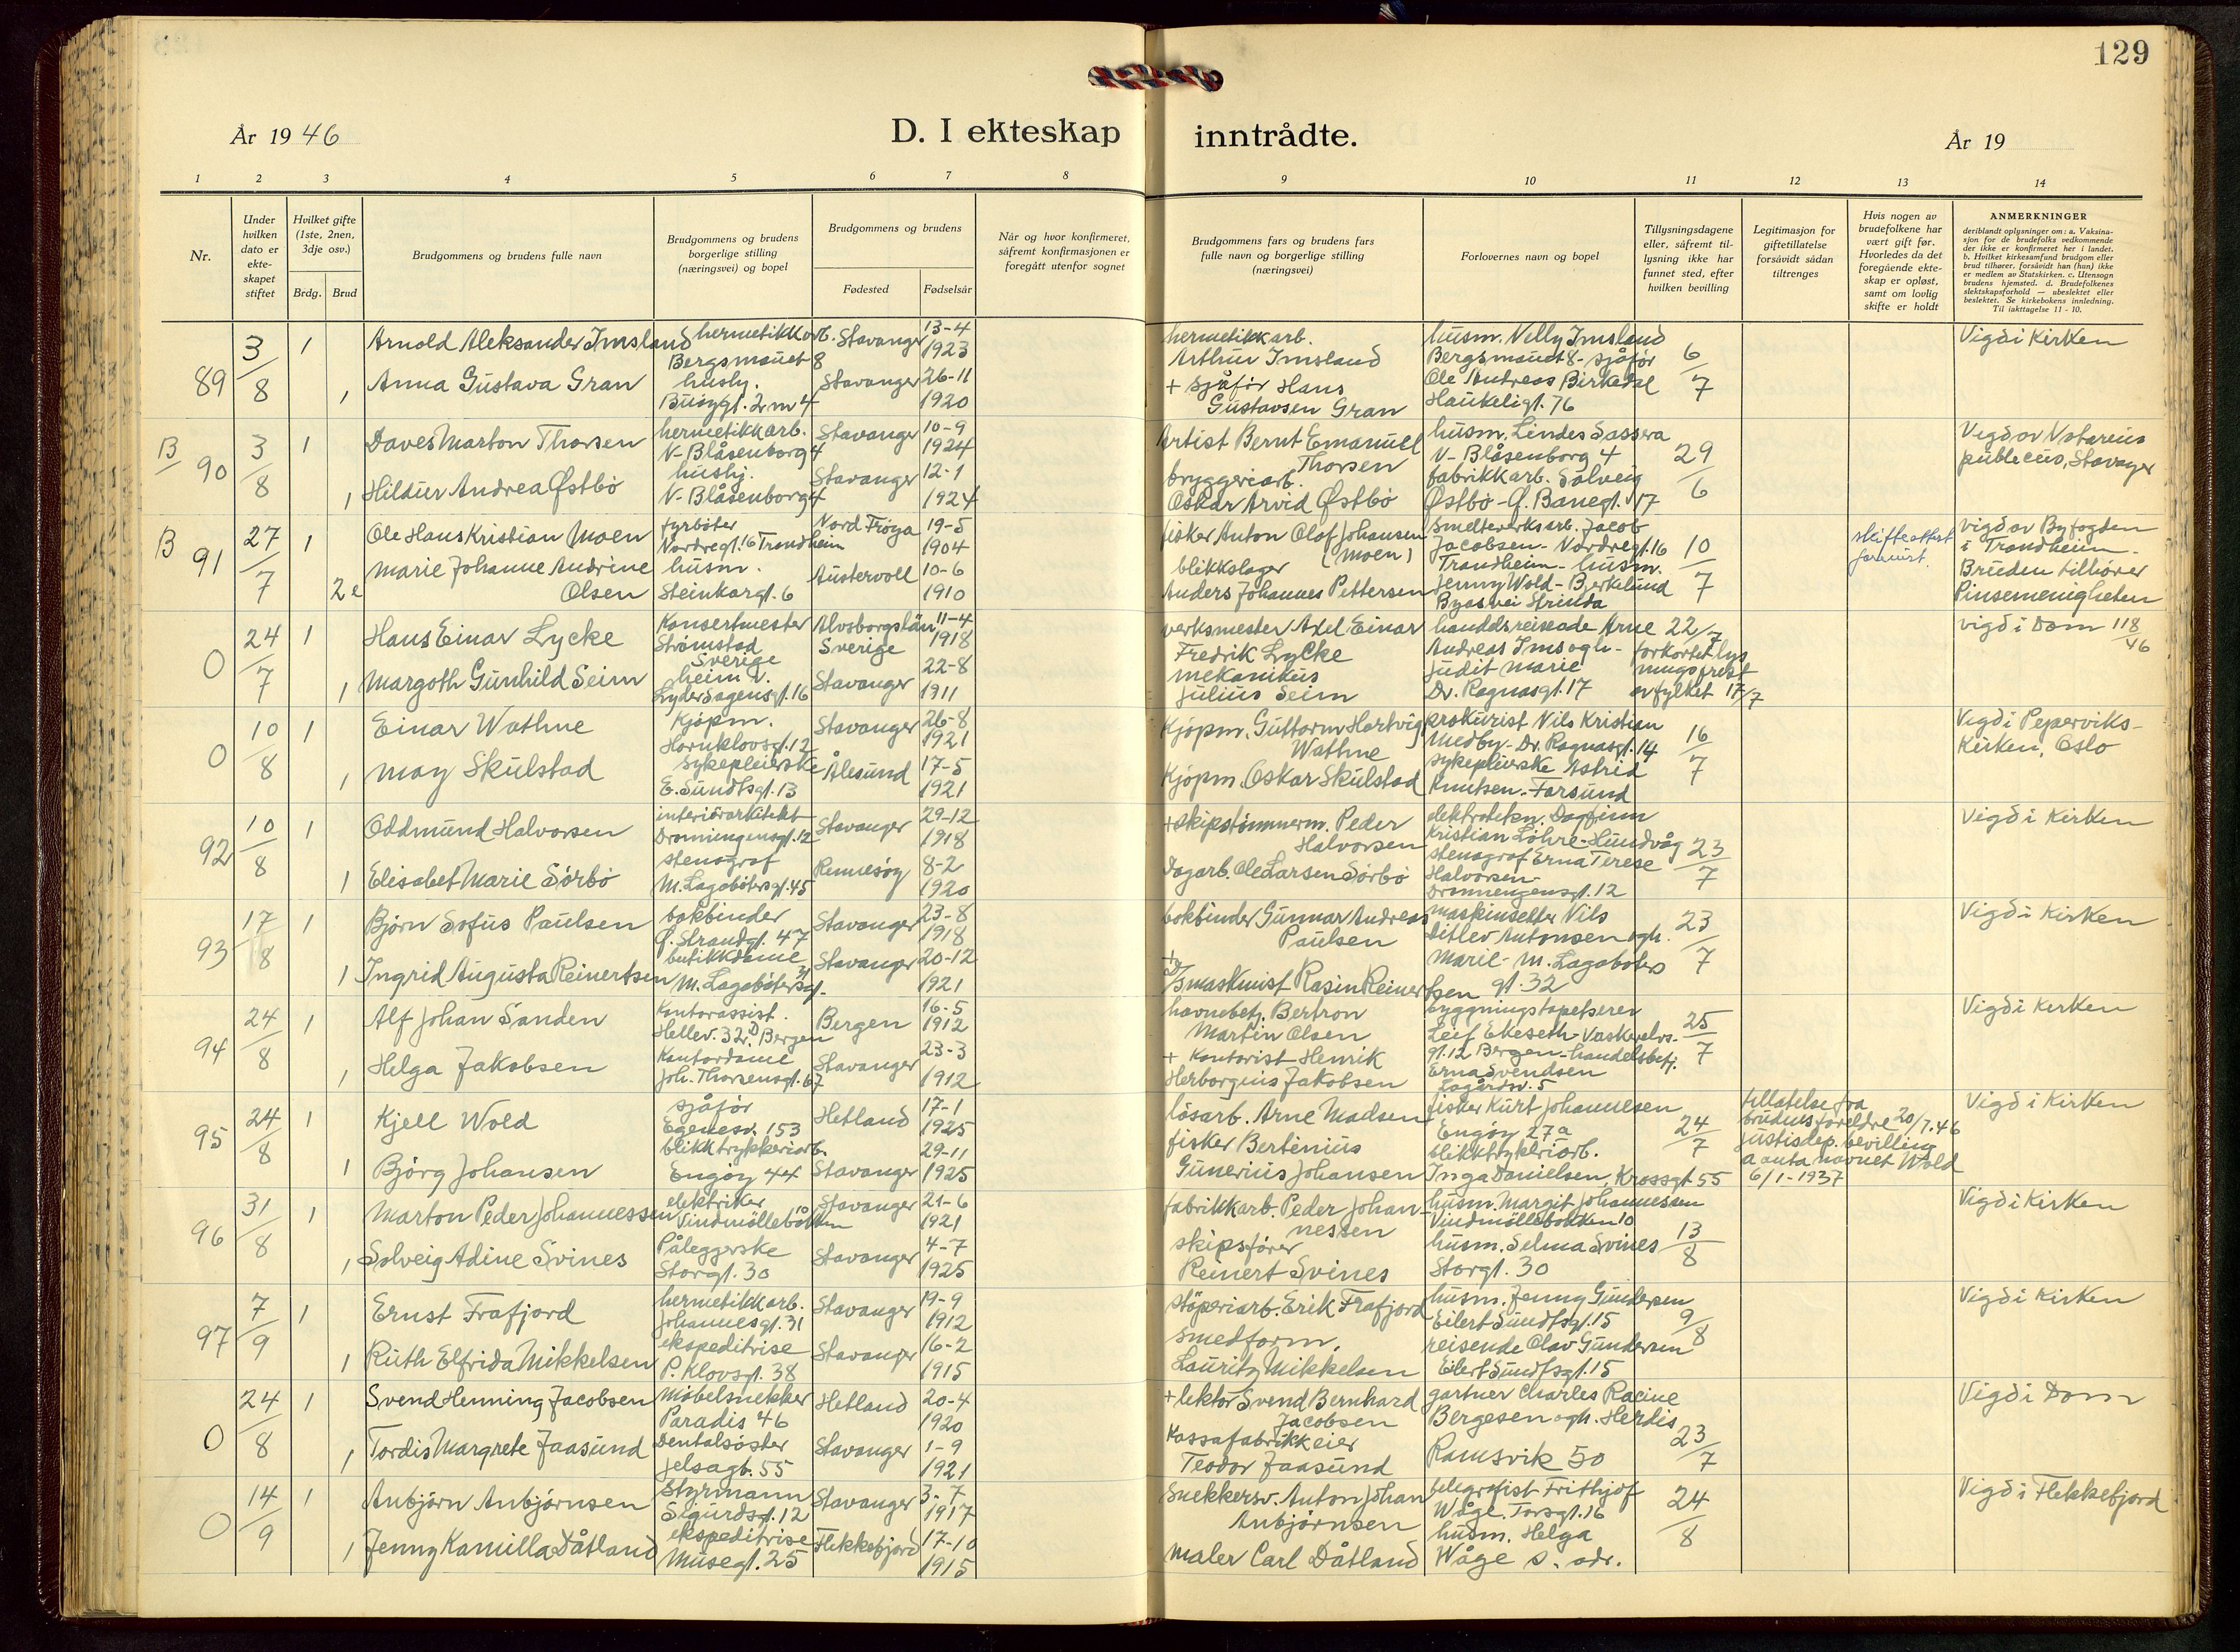 129
År 19 46
D. I ekteskap inntrådte.
År 19
1 2 3 4 5 6 7 8 9 10 11 12 13 14
Nr.
Under hvilken dato er ekte-skapet stiftet
Hvilket gifte (1ste, 2nen, 3dje osv.)
Brdg. Brud
Brudgommens og brudens fulle navn
Brudgommens og brudens borgerlige stilling (næringsvei) og bopel
Brudgommens og brudens
Fødested Fødselsår
Når og hvor konfirmeret, såfremt konfirmasjonen er foregått utenfor sognet
Brudgommens fars og brudens fars fulle navn og borgerlige stilling (næringsvei)
Forlovernes navn og bopel
Tillysningsdagene eller, såfremt til-lysning ikke har funnet sted, efter hvilken bevilling
Legitimasjon for giftetillatelse forsåvidt sådan tiltrenges
Hvis nogen av brudefolkene har vært gift før. Hvorledes da det foregående ekte-skap er opløst, samt om lovlig skifte er holdt
ANMERKNINGER
deriblandt oplysninger om: a. Vaksina-sjon for de brudefolks vedkommende der ikke er konfirmeret her i landet. b. Hvilket kirkesamfund brudgom eller brud tilhører, forsåvidt han (hun) ikke er medlem av Statskirken. c. Utensogn brudens hjemsted. d. Brudefolkenes slektskapsforhold — ubeslektet eller beslektet. Se kirkebokens innledning. Til iakttagelse 11 - 10.
89 3/8 1 Arnold Aleksander Imsland hermetikkarb. Bergsmauet 8 Stavanger 13-4 1923
hermetikkarb. Arthur Imsland
husm. Villy Imsland Bergsmauet 8 - sjåfør
6/7
Vigd i Kirken
1 Anna Gustava Gran Stavanger 26-11 1920
+ sjåfør Hans Gustavsen Gran
Ole Andreas Birkedal Haukeligt. 76
B 90 3/8 1 Daves Marton Thorsen hermetikkarb. V- Blåsenborg 4 Stavanger 10-9 1924
Artist Bernt Emanuel Thorsen
husm. Lindes Sassera V- Blåsenborg 4
29/6
Vigd av Notarius publicus, Stavanger
1 Hildur Andrea Østbø hushj. V- Blåsenborg 4 Stavanger 12-1 1924
bryggeriarb. Oskar Arvid Østbø
fabrikkarb. Solveig Østbø - Ø. Banegt. 17
B 91 27/7 1 Ole Hans Kristian Moen fyrbøter Nordregt. 16 Trondheim Nord Frøya 19-5 1904
fisker Anton Olof Johansen (Moen)
smelteverksarb. Jacob Jacobsen - Nordregt. 16 Trondheim - husm.
10/7
skifteattest
vigd av Byfogden i Trondheim - Bruden tilhører Pinsemenigheten
2e Marie Johanne Andrine Olsen husm. Steinkargt. 6 Austervoll 10-6 1910
blikkslager Anders Johannes Pettersen
Jenny Wold - Berkelund Byåsvei Strinda
0 24/7 1 Hans Einar Lycke Konsertmester Strømstad Sverige Alvsborgslän Sverige 11-4 1918
verksmester Axel Einar Fredrik Lycke
handelsreisende Arne Andreas Ims ogh -
22/7 forkortet lysningsfrist av fylket 17/7
vigd i Dom 118/46
1 Margoth Gunhild Seim heim v. Lyder Sagensgt. 16 Stavanger 22-8 1911
mekanikus Julius Seim
Judit Marie Dr. Ragnasgt. 17
0 10/8 1 Einar Wathne Kjøpm. Hornklovsgt. 12 Stavanger 26-8 1921
Kjøpm. Guttorm Hartvig Wathne
prokurist Nils Kristian Medby - Dr. Ragnasgt. 14
16/7
Vigd i Peperviks-Kirken, Oslo
1 May Skulstad sykepleierske E. Sundtsgt. 13 Ålesund 17-5 1921
Kjøpm. Oskar Skulstad
sykepleierske Astrid Knutsen - Farsund
92 10/8 1 Oddmund Halvorsen interiørarkitekt Dronningensgt. 12 Stavanger 29-12 1918
+ skipstømmerm. Peder Halvorsen
Dagfinn Kristian Løhre - Hundvåg
23/7
Vigd i Kirken
1 Elisabet Marie Sørbø stenograf M. Lagabøtersgt. 45 Rennesøy 8-2 1920
Dagarb. Ole Larsen Sørbø
stenograf Erna Terese Halvorsen - Dronningensgt. 12
93 17/8 1 Bjørn Sofus Paulsen bokbinder Ø. Strandgt. 47 Stavanger 23-8 1918
bokbinder Gunnar Andreas Paulsen
maskinsetter Nils Ditlev Antonsen ogh.
23/7
Vigd i Kirken
1 Ingrid Augusta Reinertsen butikkdame M. Lagabøtersgt. Stavanger 20-12 1921
maskinist Rasin Reinertsen
Marie - M. Lagabøters gt. 32
94 24/8 1 Alf Johan Sanden Kontorassist. Bergen Bergen 16-5 1912
havnebetj. Bertron Martin Olsen
bygningstapetserer Leif Ekeseth -
25/7
Vigd i Kirken
1 Helga Jakobsen Kontordame Joh. Thorsensgt. 67 Stavanger 23-3 1912
+ Kontorist Henrik Herborgius Jakobsen
gt. 12 Bergen - handelsbetj. Erna Svendsen Lagårdsv. 5
95 24/8 1 Kjell Wold sjåfør Egenesv. 153 Hetland 17-1 1925
løsarb. Arne Madsen
fisker Kurt Johannesen Engøy 27a
24/7
tillatelse fra brudens foreldre 20/7.46 justisdep. bevilling å anta navnet Wold 6/1-1937
Vigd i Kirken
1 Bjørg Johansen blikktrykkeriarb. Engøy 44 Stavanger 29-11 1925
fisker Bertinius Gunerius Johansen
blikktrykkeriarb. Inga Danielsen, Krossgt 55
96 31/8 1 Marton Peder Johannessen elektriker Vindmøllebakken 10 Stavanger 21-6 1921
fabrikkarb. Peder Johannessen
husm. Margit Johannessen Vindmøllebakken 10
13/8
Vigd i Kirken
1 Solveig Adine Svines Påleggerske Storgt. 30 Stavanger 4-7 1925
skipsfører Reinert Svines
husm. Selma Svines Storgt. 30
97 7/9 1 Ernst Frafjord hermetikkarb. Johannesgt. 31 Stavanger 19-9 1912
støperiarb. Erik Frafjord
husm. Jenny Gundersen Eilert Sundtsgt. 15
9/8
Vigd i Kirken
1 Ruth Elfrida Mikkelsen ekspeditrise P. Klovsgt. 38 Stavanger 16-2 1915
smedform. Lauritz Mikkelsen
reisende Olav Gundersen Eilert Sundtsgt. 15
0 24/8 1 Svend Henning Jacobsen Møbelsnekker Paradis 46 Hetland 20-4 1920
+ lektor Svend Bernhard Jacobsen
gartner Charles Racine Bergesen ogh. Herdis
23/7
Vigd i Dom
1 Tordis Margrete Jaasund Dentalsøster Jelsagt. 55 Stavanger 1-9 1921
Kassafabrikkeier Teodor Jaasund
Ramsvik 50
0 14/9 1 Anbjørn Anbjørnsen Styrmann Sigurdsgt. 12 Stavanger 3-7 1917
Snekkersv. Anton Johan Anbjørnsen
telegrafist Frithjof Wåge. Torsgt. 16
24/8
Vigd i Flekkefjord
1 Jenny Kamilla Dåtland ekspeditrise Musegt. 25 Flekkefjord 17-10 1915
Maler Carl Dåtland
husm. Helga Wåge s. adr.